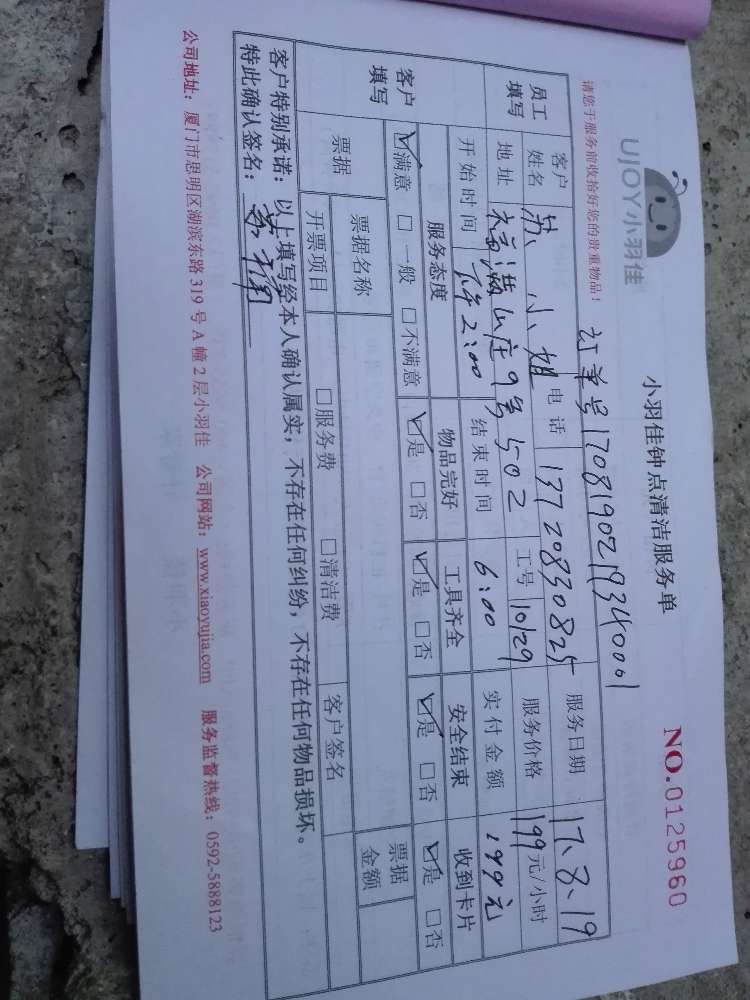 UJOY小羽佳
小羽佳钟点清洁服务单
NO.0125960
请您于服务前收拾好您的贵重物品!
订单号1708190219340001
员工填写
客户姓名 苏小姐 电话 13720830825 服务日期 17、8、19
地址 福满山庄9号502 工号 10129 服务价格 199元/小时
开始时间 下午2:00 结束时间 6:00 实付金额 199元
客户填写
服务态度 物品完好 工具齐全 安全结束 收到卡片
☑满意 □一般 □不满意 ☑是 □否 ☑是 □否 ☑是 □否 ☑是 □否
票据 票据名称 票据金额
开票项目 □服务费 □清洁费 客户签名
客户特别承诺:以上填写经本人确认属实,不存在任何纠纷,不存在任何物品损坏。
特此确认签名:
公司地址:厦门市思明区湖滨东路319号A幢2层小羽佳 公司网站:www.xiaoyujia.com 服务监督热线:0592-5888123